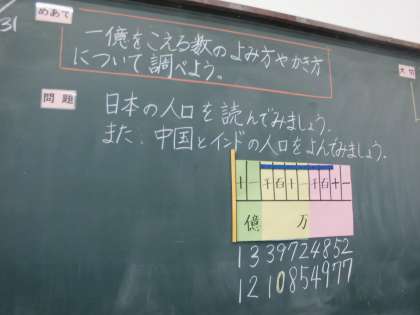 31
めあて
一億をこえる数のよみ方やかき方
について調べよう。
大切
問題
日本の人口を読んでみましょう。
また、中国とインドの人口をよんでみましょう。
十一千百十一千百十一
億 万
1339724852
1210854977